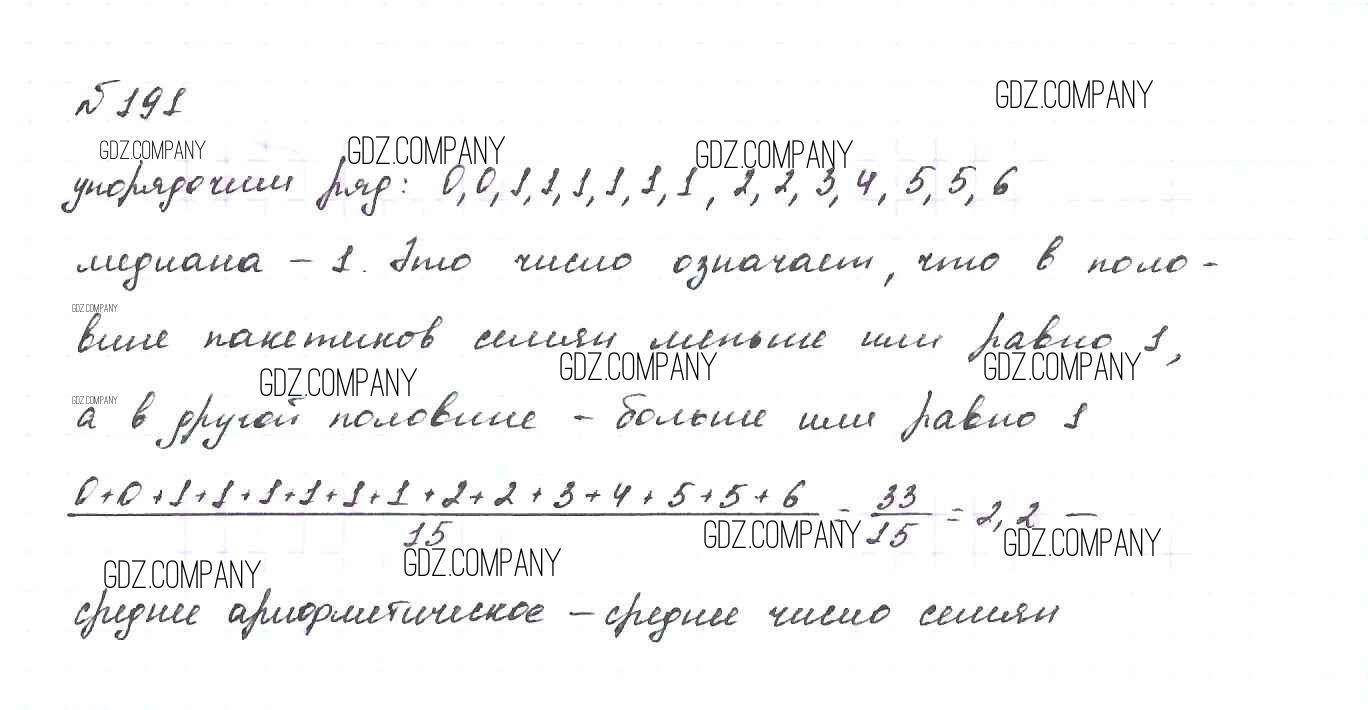 GDZ.COMPANY
№ 191
GDZ.COMPANY GDZ.COMPANY GDZ.COMPANY
упорядочим ряд: 0, 0, 1, 1, 1, 1, 1, 1, 2, 2, 3, 4, 5, 5, 6
медиана – 1. Это число означает, что в поло-
GDZ.COMPANY
вине пакетиков семян меньше или равно 1,
GDZ.COMPANY GDZ.COMPANY GDZ.COMPANY
GDZ.COMPANY
а в другой половине – больше или равно 1
0+0+1+1+1+1+1+1+2+2+3+4+5+5+6 / 15 = 33 / 15 = 2,2 –
GDZ.COMPANY GDZ.COMPANY GDZ.COMPANY GDZ.COMPANY
среднее арифметическое – среднее число семян